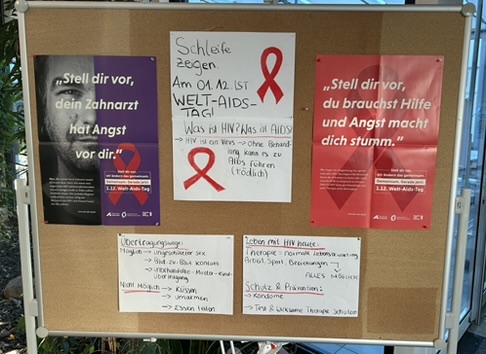 „Stell dir vor,
dein Zahnarzt
hat Angst
vor dir.“
1.12. Welt-Aids-Tag
Schleife
zeigen.
Am 01.12. IST
WELT-AIDS-
TAG!
Was ist HIV? Was ist AIDS?
→ HIV ist ein Virus → ohne Behand-
lung kann es zu
AIDS führen
(tödlich)
„Stell dir vor,
du brauchst Hilfe
und Angst macht
dich stumm.“
1.12. Welt-Aids-Tag
Übertragungswege:
Möglich → ungeschützter Sex
→ Blut zu Blut Kontakt
→ unbehandelte Mutter-Kind-
übertragung
Nicht Möglich → Küssen
→ umarmen
→ Essen teilen
Leben mit HIV heute:
Therapie = normale Lebenserwartung
Arbeit, Sport, Beziehungen
ALLES MÖGLICH
Schutz & Prävention:
→ Kondome
→ Test & wirksame Therapie Schützen